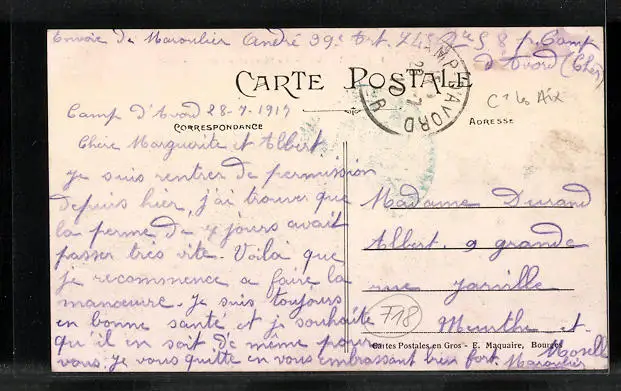 Envoie de Maroulier André 39e Art. 74e
S 8 pr. Camp
d'Avord (Cher)
CARTE POSTALE
CAMP D'AVORD
CHER
Camp d'Avord 28-7-1917
CORRESPONDANCE
ADRESSE
Chère Marguerite et Albert
Je suis rentrer de permission
depuis hier, j'ai trouver que
la perme de 7 jours avait
passer très vite. Voilà que
je recommence a faire la
manœuvre. Je suis toujours
en bonne santé et je souhaite
qu'il en soit de même pour
vous. Je vous quitte en vous embrassant bien fort. Maroulier
Madame Durand
Albert. 9 grande
rue Jarville
Meurthe et
Moselle
718
Cartes Postales en Gros - E. Maquaire, Bourges